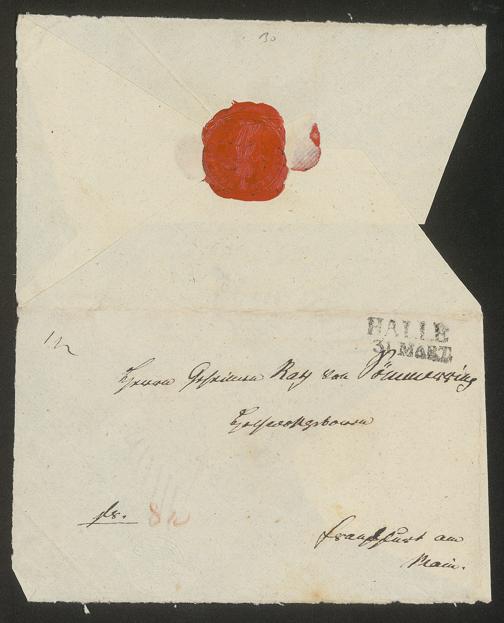 30
HALLE
31 MART
Herrn Geheimen Rath von Sömmerring
Hochwohlgeboren
fr.
Frankfurt am
Main.